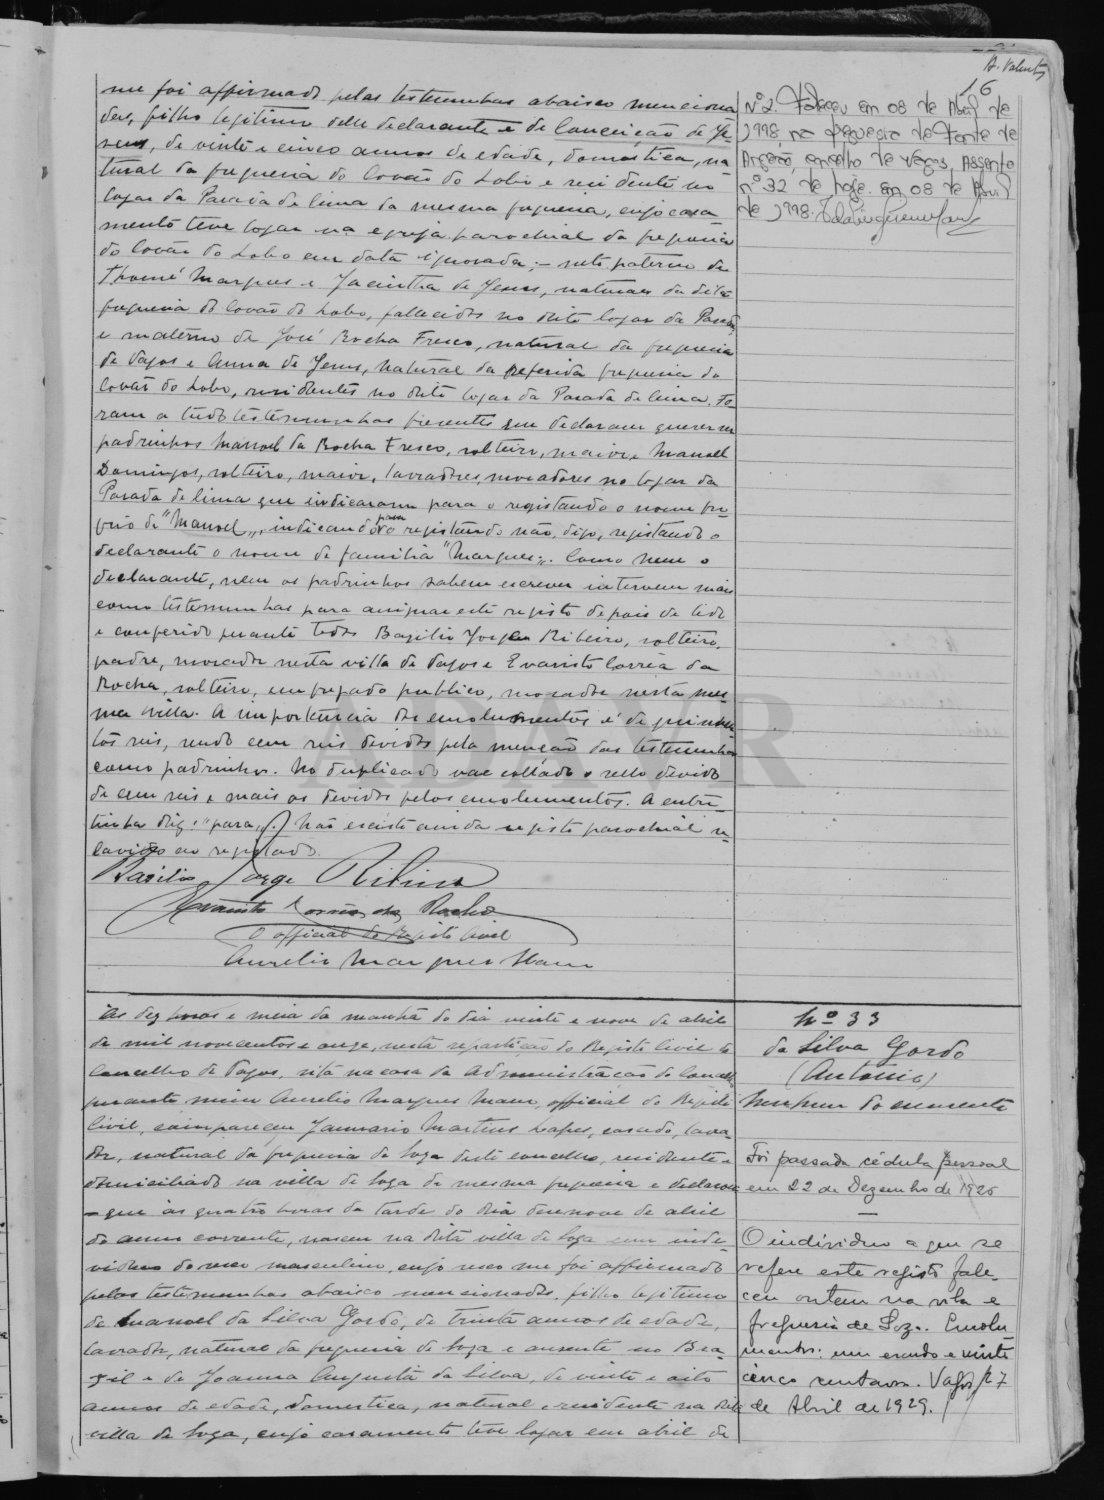 A. Valente
16
me foi affirmado pelas testemunhas abaixo menciona
das, filho legitimo delle declarante e de Conceição de Je-
sus, de vinte e cinco annos de edade, domestica, na-
tural da freguesia do Covão do Lobo e residente no
logar da Parada de Cima da mesma freguesia, cujo casa
mento teve logar na egreja parochial da freguesia
do Covão do Lobo em data ignorada; – neto paterno de
Thomé Marques e Jacintha de Jesus, naturaes da dita
freguesia do Covão do Lobo, fallecidos no dito logar da Parada,
e materno de José Rocha Fresco, natural da freguesia
de Vagos e Anna de Jesus, natural da referida freguesia do
Covão do Lobo, residentes no dito logar da Parada de Cima. Fo-
ram a tudo testemunhas presentes que declaram querer ser
padrinhos Manoel da Rocha Fresco, solteiro, maior, e Manoel
Domingos, solteiro, maior, lavradores, moradores no logar da
Parada de Cima que indicaram para o registando o nome pro-
prio de "Manoel", indicando para o registando não, digo, registando o
declarante o nome de familia "Marques". Como nem o
declarante, nem os padrinhos sabem escrever intervem mais
como testemunhas para assignar este registo depois de lido
e conferido perante todos Bazilio Jorge Ribeiro, solteiro,
padre, morador nesta villa de Vagos e Evaristo Corrêa da
Rocha, solteiro, empregado publico, morador nesta mes-
ma villa. A importancia dos emolumentos é de quinhen-
tos reis, sendo cem reis devidos pela menção das testemunhas
como padrinhos. No duplicado vae collado o sello devido
de cem reis e mais os devidos pelos emolumentos. A entre-
linha diz: "para". Não existe ainda registo parochial re-
lativo ao registado.
Basilio Jorge Ribeiro
Evaristo Corrêa da Rocha
O official do Registo Civil
Aurelio Marques Mano
Nº2. Faleceu em 08 de Abril de
1998, na freguesia de Fonte de
Angeão, concelho de Vagos, Assento
nº 32 de hoje. em 08 de Abril
de 1998.
Às dez horas e meia da manhã do dia vinte e nove de abril
de mil novecentos e onze, nesta repartição do Registo Civil do
Concelho de Vagos, sita na casa da Administração do Concelho
perante mim Aurelio Marques Mano, official do Registo
Civil, compareceu Januario Martins Lopes, casado, lavra-
dor, natural da freguesia de Soza deste concelho, residente e
domiciliado na villa de Soza da mesma freguesia e declarou
– que ás quatro horas da tarde do dia desenove de abril
do anno corrente, nasceu na dita villa de Soza um indi-
viduo do sexo masculino, cujo sexo me foi affirmado
pelas testemunhas abaixo mencionadas, filho legitimo
de Manoel da Silva Gordo, de trinta annos de edade,
lavrador, natural da freguesia de Soza e ausente no Bra-
zil e de Joanna Augusta da Silva, de vinte e oito
annos de edade, domestica, natural e residente na dita
villa de Soza, cujo casamento teve logar em abril de
Nº 33
da Silva Gordo
(Antonio)
Nenhum documento
Foi passada cédula pessoal
em 22 de Dezembro de 1926
O indivíduo a que se
refere este registo fale-
ceu ontem na vila e
freguesia de Soza. Emolu
mentos: um escudo e vinte
cinco centavos. Vagos, 27
de Abril de 1929.
ADAVR